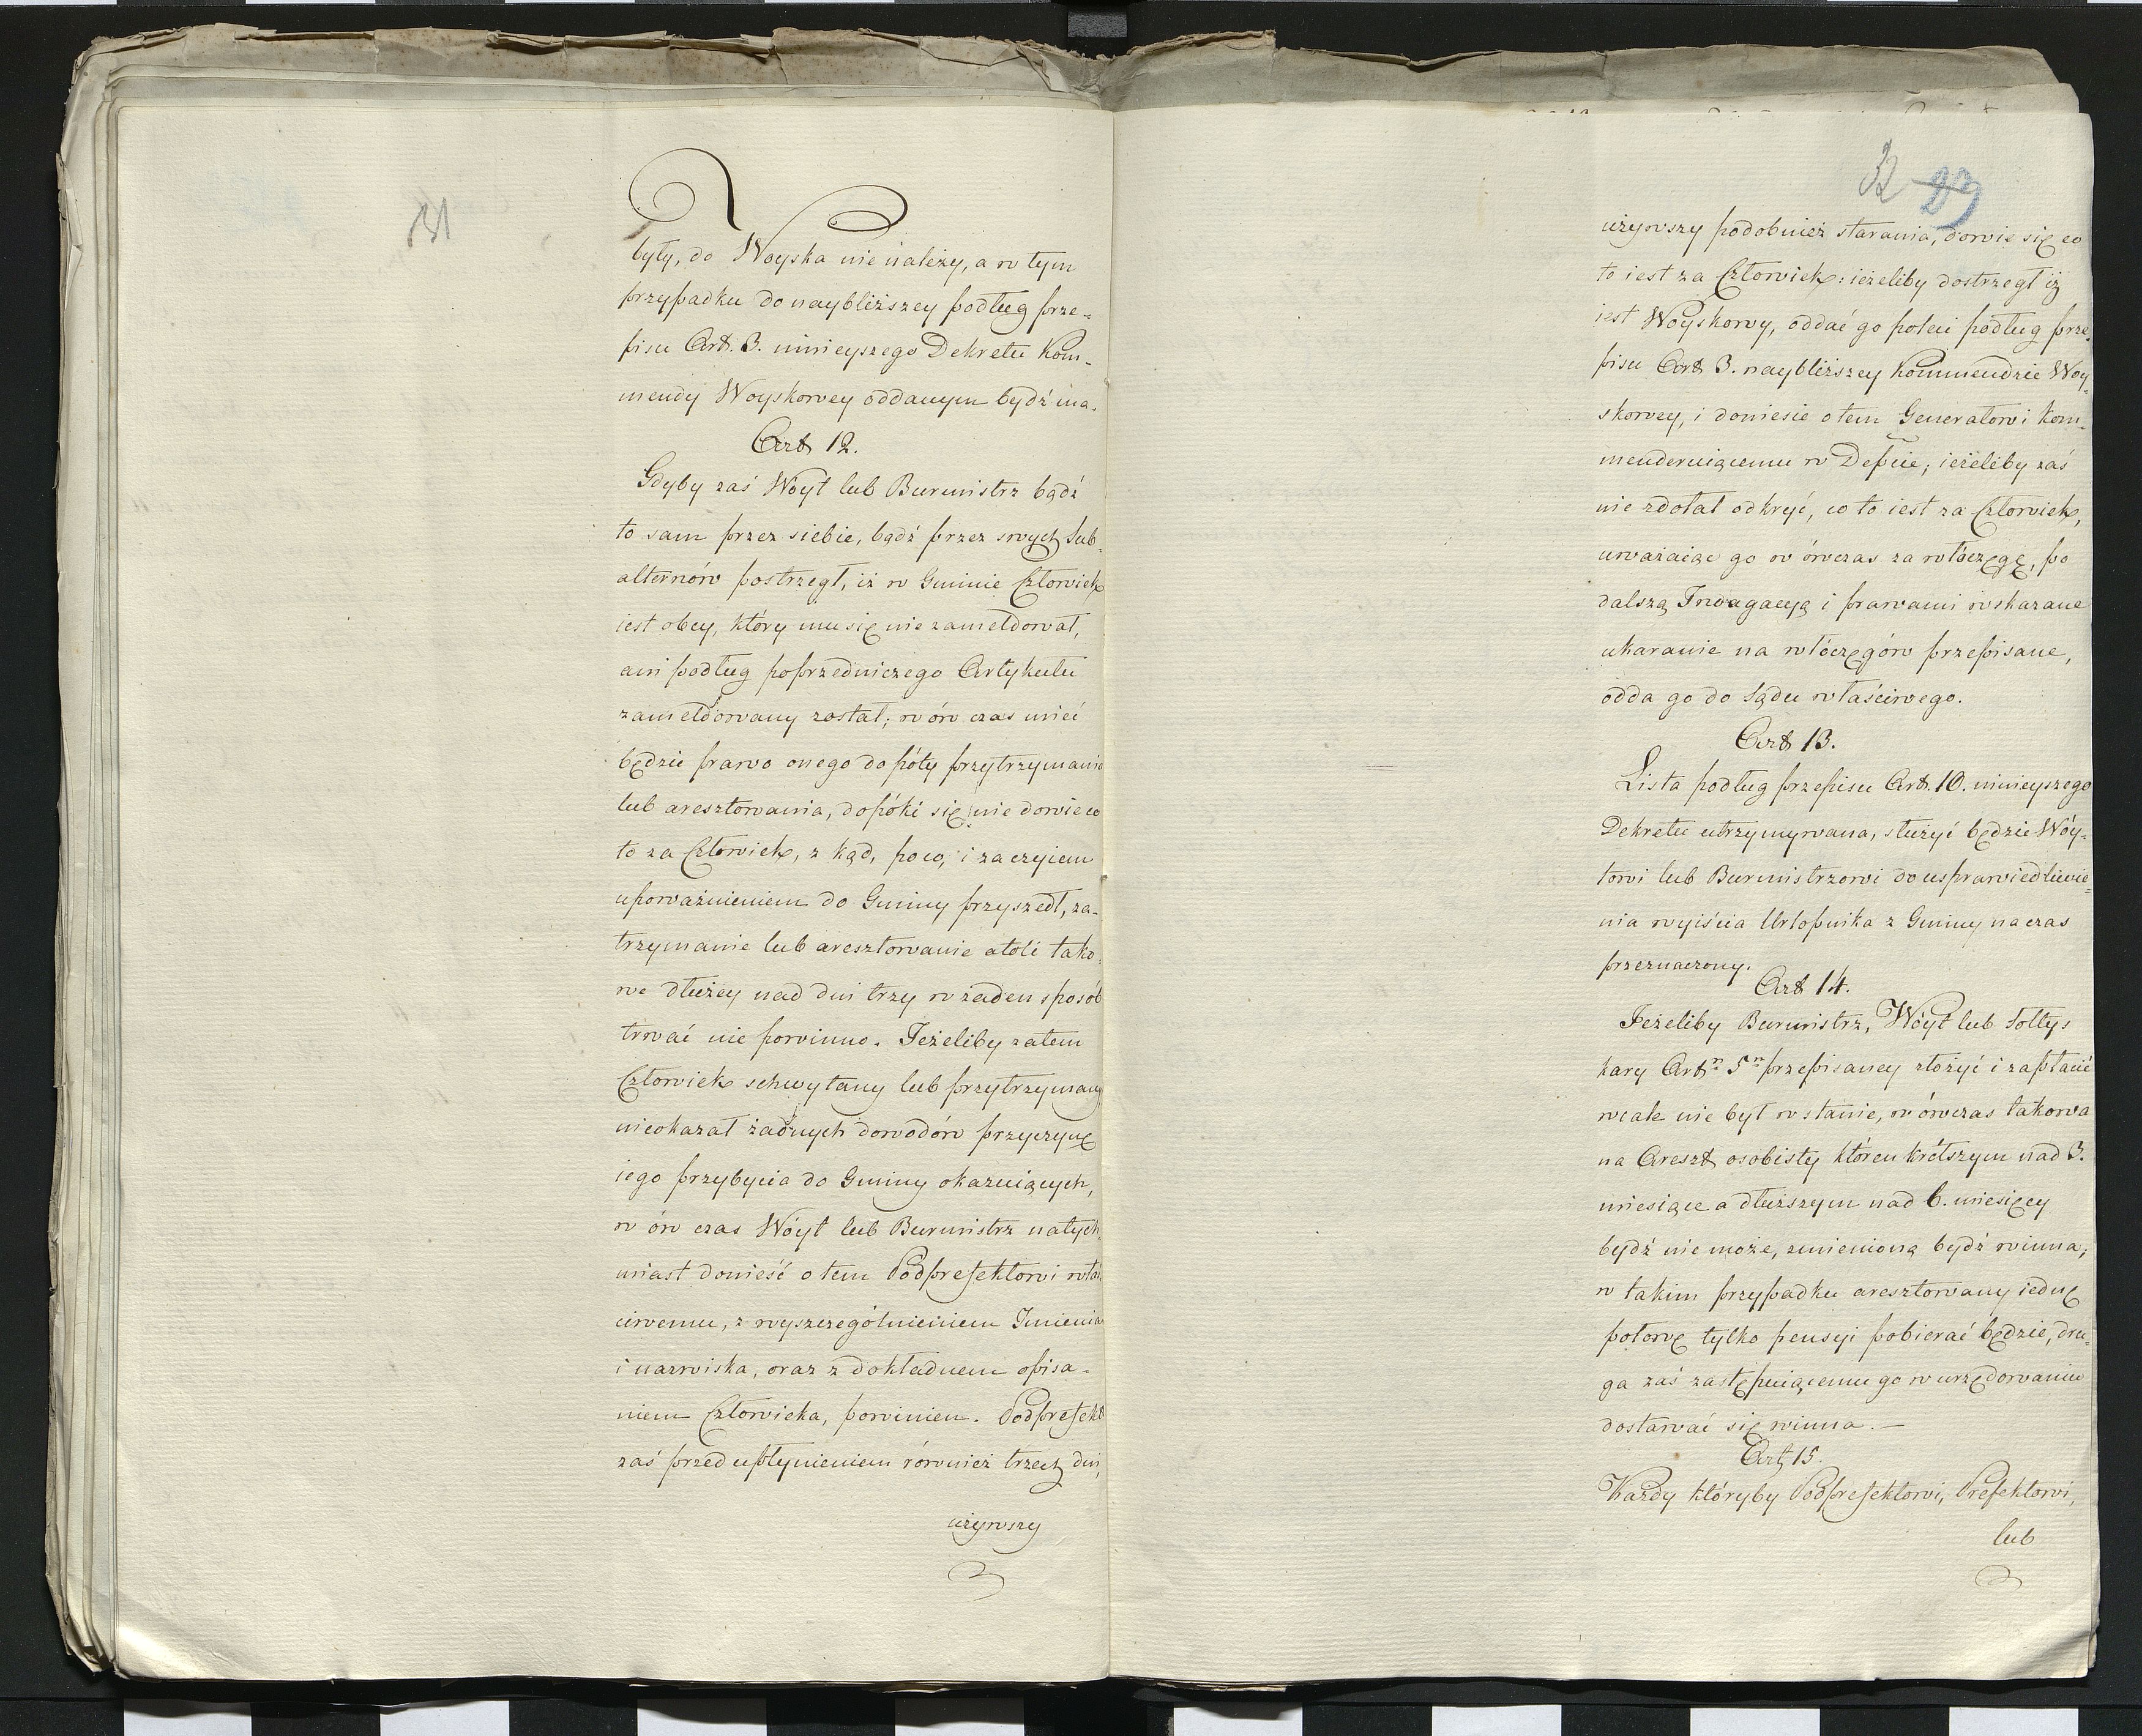 31
były, do Woyska nie należy, a w tym
przypadku do naybliższey podług prze-
pisu Art. 3. ninieyszego Dekretu Kom-
mendy Woyskowey oddanym bydź ma.
Art 12.
Gdyby zaś Woyt lub Burmistrz bądź
to sam przez siebie, bądź przez swych Sub-
alternów postrzegł, iż w Gminie Człowiek
iest obcy, który mu się nie zameldował,
ani podług poprzedniczego Artykułu
zameldowany został; w ów czas mieć
będzie prawo onego dopóty przytrzymania
lub aresztowania, dopóki się nie dowie co
to za Człowiek, z kąd, poco, i za czyiem
upoważnieniem do Gminy przyszedł, za-
trzymanie lub aresztowanie atoli tako-
we dłużey nad dni trzy w żaden sposób
trwać nie powinno. Jeżeliby zatem
Człowiek schwytany lub przytrzymany
nieokazał żadnych dowodów przyczynę
iego przybycia do Gminy okazuiących,
w ów czas Wóyt lub Burmistrz natych-
miast donieść o tem Podprefektowi właś
ciwemu, z wyszczególnieniem Imienia
i nazwiska, oraz z dokładnem opisa-
niem Człowieka, powinien. Podprefekt
zaś przed upłynieniem również trzech dni,
używszy
32 29
używszy podobnież starania, dowie się co
to iest za Człowiek: ieżeliby dostrzegł iż
iest Woyskowy, oddać go poleci podług prze-
pisu Art 3. naybliższey Kommendzie Woy-
skowey, i doniesie o tem Generałowi Kom-
menderuiącemu w Depcie; ieżeliby zaś
nie zdołał odkryć, co to iest za Człowiek,
uważaiąc go w ówczas za włóczęgę, po
dalszą Indagacyą i prawami wskazane
ukaranie na włóczęgów przepisane,
odda go do Sądu właściwego.
Art 13.
Lista podług przepisu Art. 10. ninieyszego
Dekretu utrzymywana, służyć będzie Wóy-
towi lub Burmistrzowi do usprawiedliwie-
nia wyiścia Urlopnika z Gminy na czas
przeznaczony.
Art 14.
Jeżeliby Burmistrz, Wóyt lub Sołtys
kary Artn 5n przepisaney złożyć i zapłacić
wcale nie był w stanie, w ówczas takowa
na Areszt osobisty któren krótszym nad 3.
miesiące a dłuższym nad 6. miesięcy
bydź nie może, zmienioną bydź winna;
w takim przypadku aresztowany iednę
połowę tylko pensyi pobierać będzie, dru-
ga zaś zastępuiącemu go w urzędowaniu
dostawać się winna. —
Art 15.
Każdy któryby Podprefektowi, Prefektowi,
lub